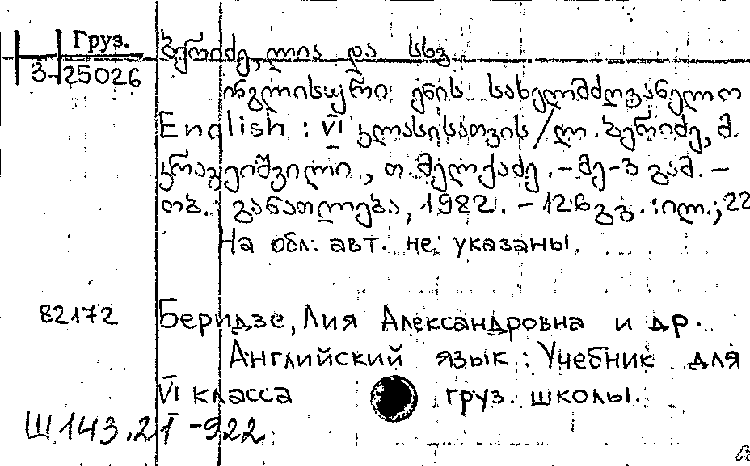 Груз.
3-25026
ბერიძე, ლია და სხვ.
ინგლისური ენის სახელმძღვანელო
English : VI კლასისათვის / ლ. ბერიძე, მ.
კრავეიშვილი, თ. მელქაძე. – მე-3 გამ. –
თბ. : განათლება, 1982. – 126 გვ. : ილ.; 22
На обл. авт. не указаны.
82172
Беридзе, Лия Александровна и др.
Английский язык : Учебник для
VI класса груз. школы.
Ш 143.21-922